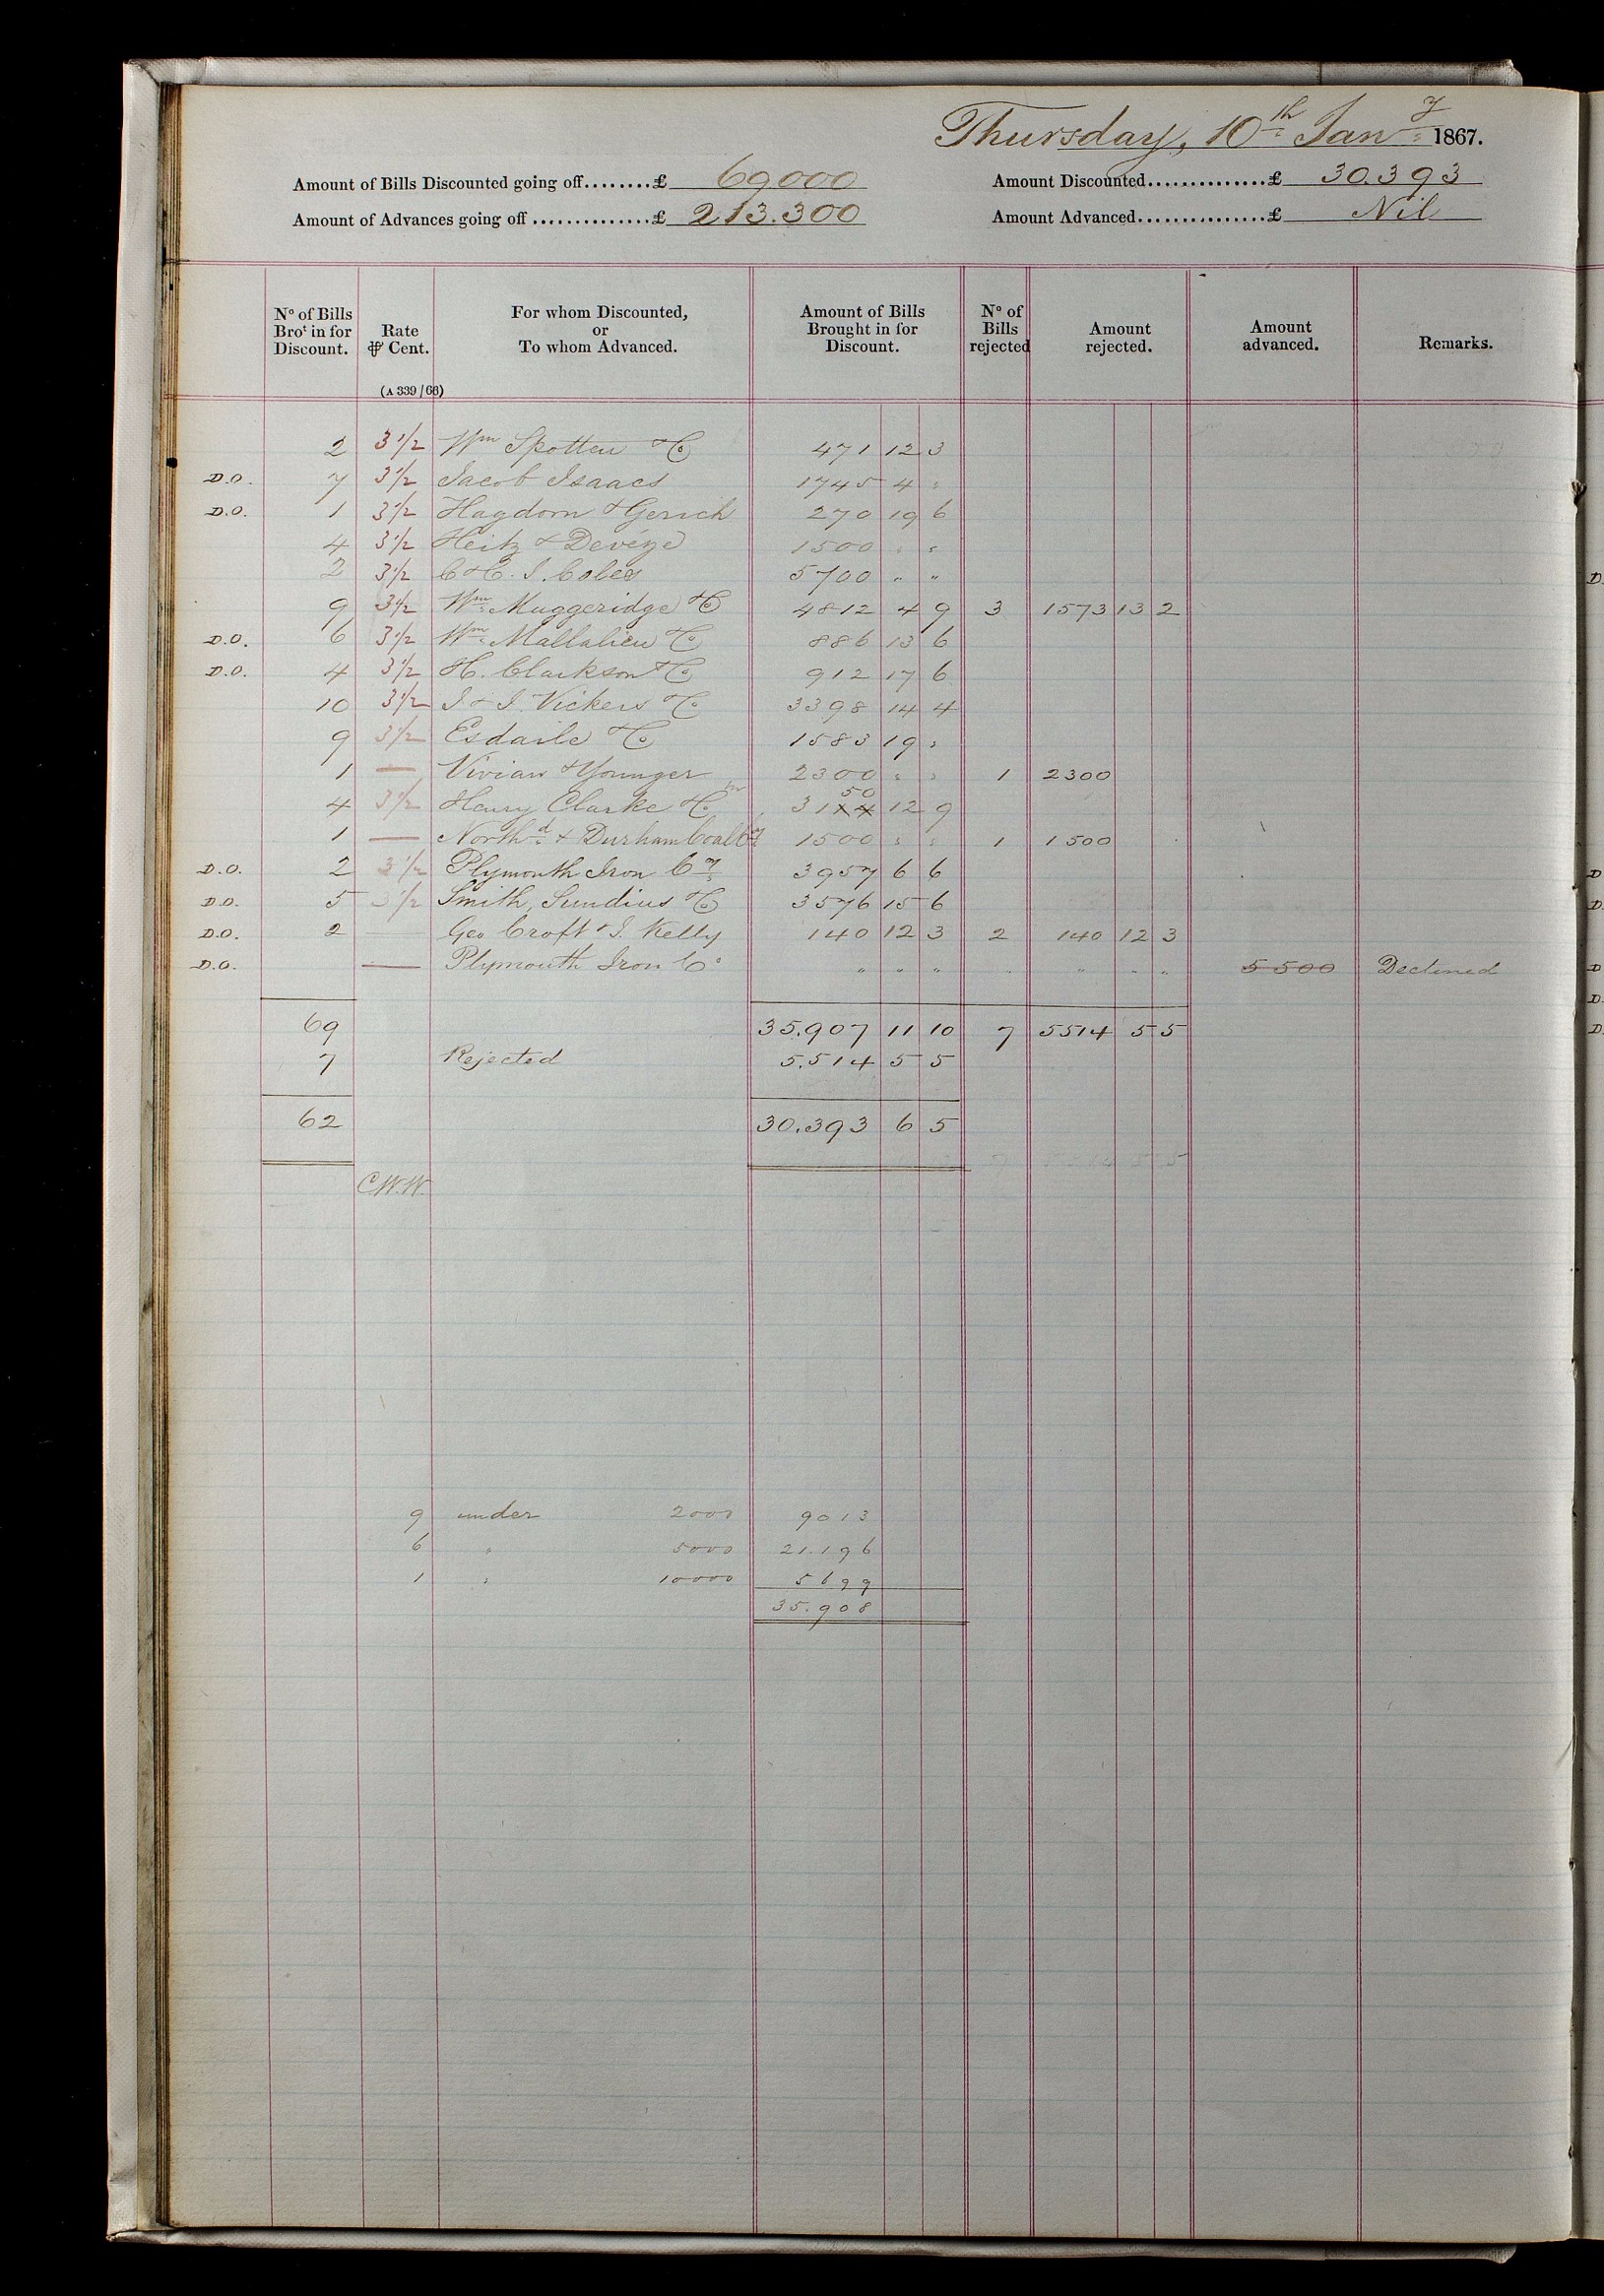 Thursday, 10th Jany 1867.
Amount of Bills Discounted going off........£ 69000 Amount Discounted..............£ 30.393
Amount of Advances going off..............£ 213.300 Amount Advanced...............£ Nil
No of Bills Brot in for Discount. Rate ⅌ Cent. For whom Discounted, or To whom Advanced. Amount of Bills Brought in for Discount. No of Bills rejected Amount rejected. Amount advanced. Remarks.
(A 339/66)
2 3 1/2 Wm Spotten & Co 471 12 3
D.O. 7 3 1/2 Jacob Isaacs 1745 4 "
D.O. 1 3 1/2 Hagdorn & Gerich 270 19 6
4 3 1/2 Heitz & Deveze 1500 " "
2 3 1/2 5700 " "
9 3 1/2 Wm Muggeridge & Co 4812 4 9 3 1573 13 2
D.O. 6 3 1/2 Wm Mallalieu & Co 886 13 6
D.O. 4 3 1/2 H. Clarkson & Co 912 17 6
10 3 1/2 I & I. Vickers & Co 3398 14 4
9 3 1/2 Esdaile & Co 1583 19 "
1 — Vivian & Younger 2300 " " 1 2300
4 3 1/2 Henry Clarke & Co 3150 12 9
1 — Northd & Durham Coal Coy 1500 " " 1 1500
D.O. 2 3 1/2 Plymouth Iron Coy 3957 6 6
D.O. 5 3 1/2 Smith, Sundius & Co 3576 15 6
D.O. 2 — Geo Croft & I. Kelly 140 12 3 2 140 12 3
D.O. — Plymouth Iron Co " " " " " " " 5500 Declined
69 35.907 11 10 7 5514 5 5
7 Rejected 5.514 5 5
62 30.393 6 5
C.W.W.
9 under 2000 9013
6 " 5000 21.196
1 " 10000 5699
35.908